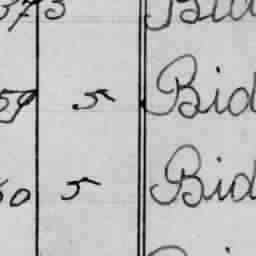 373 Bid
59 5 Bid
60 5 Bid